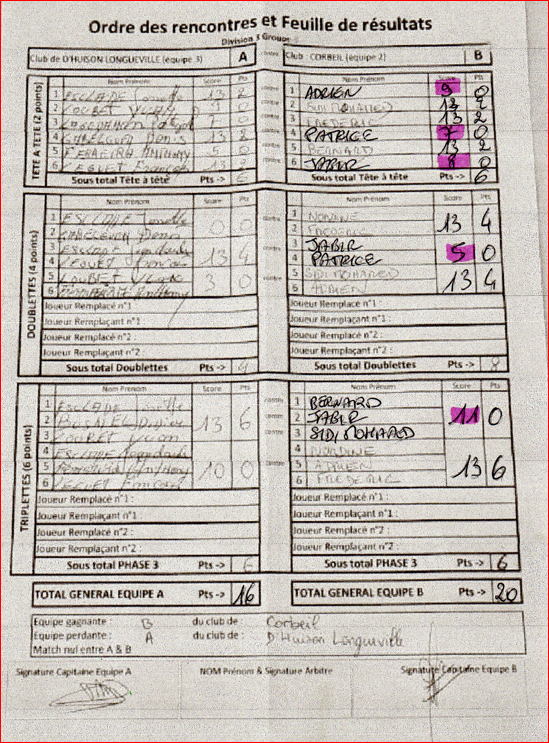 Ordre des rencontres et Feuille de résultats
Division 3 Groupe
Club de D'HUISON LONGUEVILLE (équipe 3) A contre Club : CORBEIL (équipe 2) B
TÊTE A TÊTE (2 points)
Nom Prénom Score Pts Nom Prénom Score Pts
1 ESCLADE 13 2 contre 1 ADRIEN 9 0
2 LOUBET 9 0 2 SIDI MOHAMED 13 2
3 7 0 3 FREDERIC 13 2
4 Denis 13 2 4 PATRICE 7 0
5 FERREIRA Anthony 5 0 5 BERNARD 13 2
6 LEGUET François 13 2 6 JABIR 8 0
Sous total Tête à tête Pts -> 6 Sous total Tête à tête Pts -> 6
DOUBLETTES (4 points)
Nom Prénom Nom Prénom
1 ESCLADE 0 0 contre 1 NORDINE 13 4
2 Denis 2 FREDERIC
3 ESCLADE 13 4 contre 3 JABIR 5 0
4 LEGUET 4 PATRICE
5 LOUBET 3 0 contre 5 SIDI MOHAMED 13 4
6 Anthony 6 ADRIEN
Joueur Remplacé n°1 Joueur Remplacé n°1 :
Joueur Remplaçant n°1 Joueur Remplaçant n°1 :
Joueur Remplacé n°2 : Joueur Remplacé n°2 :
Joueur Remplaçant n°2 Joueur Remplaçant n°2 :
Sous total Doublettes Pts -> 4 Sous total Doublettes Pts -> 8
TRIPLETTES (6 points)
Nom Prénom Score Pts Nom Prénom Score Pts
1 ESCLADE 13 6 contre 1 BERNARD 11 0
2 2 JABIR
3 LOUBET 3 SIDI MOHAMED
4 ESCLADE 10 0 contre 4 NORDINE 13 6
5 Anthony 5 ADRIEN
6 LEGUET 6 FREDERIC
Joueur Remplacé n°1 : Joueur Remplacé n°1 :
Joueur Remplaçant n°1 : Joueur Remplaçant n°1 :
Joueur Remplacé n°2 : Joueur Remplacé n°2 :
Joueur Remplaçant n°2 : Joueur Remplaçant n°2 :
Sous total PHASE 3 Pts -> 6 Sous total PHASE 3 Pts -> 6
TOTAL GENERAL EQUIPE A Pts -> 16 TOTAL GENERAL EQUIPE B Pts -> 20
Equipe gagnante : B du club de : Corbeil
Equipe perdante : A du club de : D'Huison Longueville
Match nul entre A & B
Signature Capitaine Equipe A NOM Prénom & Signature Arbitre Signature Capitaine Equipe B